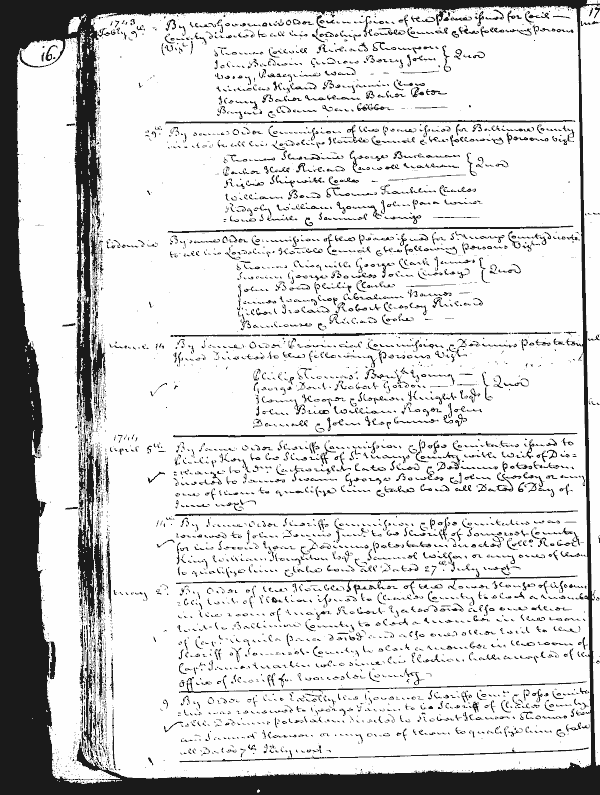 16.
1743
By the Governors Order Commission of the Peace issued for Cecil
County directed to all his Lordships Honble Council & the following Persons
(Vizt)
Thomas Colvill Richard Thompson
John Baldwin Andrew Barry John } Quor
Peregrine Ward
Nicholas Hyland Benjamin
Henry Baker Nathan Baker Peter
Bayard & Adam Vanbibber
29th By same Order Commission of the peace issued for Baltimore County
directed to all his Lordships Honble Council & the following Persons Vizt
Thomas Sheredine George Buchanan
Parker Hall Richard Caswell Nathan } Quor
Rigbie Skipwith Coale
William Bond Thomas Franklin Charles
Ridgely William Young John Paca
& Samuel
By same Order Commission of the peace issued for St. Marys County directed
to all his Lordships Honble Council & the following Persons Vizt
Thomas George Clark James
Swann George Bowles John Chesley } Quor
John Bond Philip Clarke
James Waughop Abraham Barnes
Gilbert Ireland Robert Chesley Richard
Barnhouse & Richard Cooke
March 14 By Same Order Provincial Commission & Dedimus potestatem
issued Directed to the following Persons Vizt
Philip Thomas Benja Young
George Dent Robert Gordon } Quor
Henry Hooper & Stephen Knight Esqr
John Brice William Roger John
Darnall & John Hepburne Esqrs
1744
April 5th By Same Order Sheriffs Commission & Posse Comitatus issued to
Philip Key to be Sheriff of St. Marys County with Writ of Dis=
=charge to Cartwright late Sher & Dedimus potestatem
directed to James Swann George Bowles & John Chesley or any
one of them to qualify him & take bond all Dated 6 Day of
June next
14th By Same Order Sheriffs Commission & Posse Comitatus was
renewed to John Dennis Junr to be Sheriff of Somerset County
for his Second Year & Dedimus potestatem directed Colo Robert
King William Esqr & Samuel Wilson or any one of them
to qualify him & take bond all Dated 27th July next
May 2d By Order of the Honble Speaker of the Lower House of Assem=
=bly Writ of Election issued to Charles County to elect a member
in the room of Major Robert Yates deced also one other
Writ to Baltimore County to elect a member in the room
of Capt Aquila Paca deced and also one other Writ to the
Sheriff of Somerset County to elect a member in the room of
Capt James Martin who since his Election hath accepted of the
Office of Sheriff for Worcester County
9 By Order of his Excelly the Governor Sheriffs Comn & Posse Comita
=tus was renewed to George to be Sheriff of Charles County
with Dedimus potestatem directed to Robert Hanson Thomas
and Samuel Hanson or any one of them to qualify him & take
all Dated 7th July next